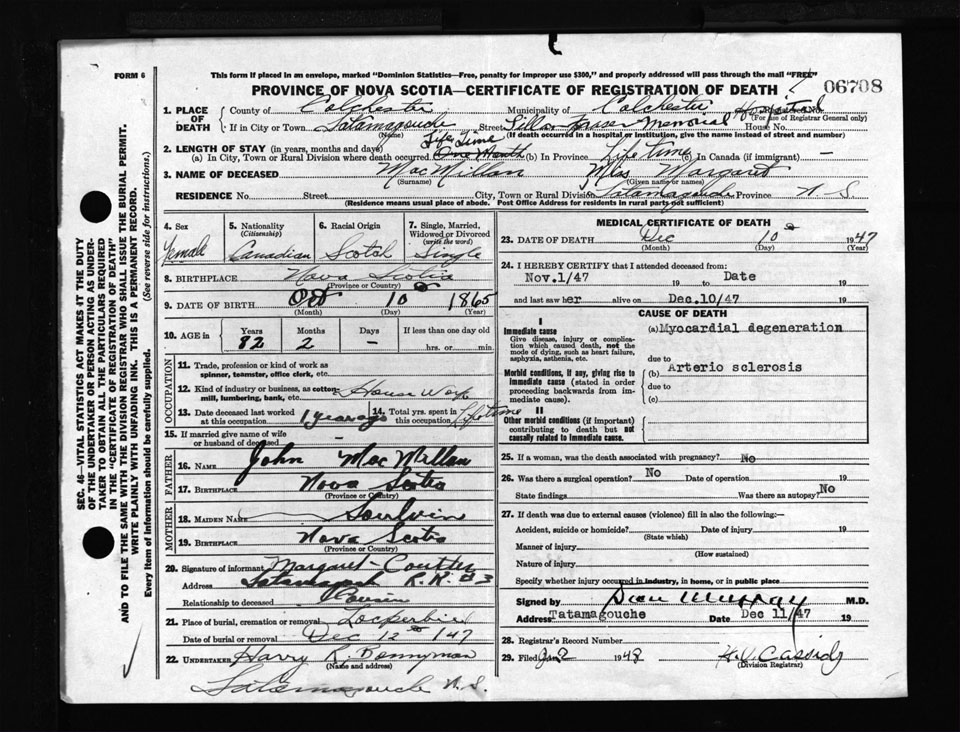 FORM 6
This form if placed in an envelope, marked "Dominion Statistics—Free, penalty for improper use $300," and properly addressed will pass through the mail "FREE"
PROVINCE OF NOVA SCOTIA—CERTIFICATE OF REGISTRATION OF DEATH
06708
1. PLACE OF DEATH
County of Colchester Municipality of Colchester Hospital
(For use of Registrar General only)
If in City or Town Tatamagouche Street Lillian Fraser Memorial House No.
(Name) (If death occurred in a hospital or institution, give the name instead of street and number)
2. LENGTH OF STAY (in years, months and days)
Life Time
(a) In City, Town or Rural Division where death occurred. One Month (b) In Province Life Time (c) In Canada (if immigrant) —
3. NAME OF DECEASED MacMillan Miss Margaret
(Surname) (Given name or names)
RESIDENCE No. Street City, Town or Rural Division Tatamagouche Province N S
(Residence means usual place of abode. Post Office Address for residents in rural parts not sufficient)
4. Sex
Female
5. Nationality
(Citizenship)
Canadian
6. Racial Origin
Scotch
7. Single, Married, Widowed or Divorced
(write the word)
Single
8. BIRTHPLACE Nova Scotia
(Province or Country)
9. DATE OF BIRTH Oct 10 1865
(Month) (Day) (Year)
10. AGE in
Years Months Days If less than one day old
82 2 – hrs. or min.
OCCUPATION
11. Trade, profession or kind of work as spinner, teamster, office clerk, etc.
12. Kind of industry or business, as cotton-mill, lumbering, bank, etc. House Wife
13. Date deceased last worked at this occupation 1 year ago
14. Total yrs. spent in this occupation Lifetime
15. If married give name of wife or husband of deceased –
FATHER
16. NAME John MacMillan
17. BIRTHPLACE Nova Scotia
(Province or Country)
MOTHER
18. MAIDEN NAME
19. BIRTHPLACE Nova Scotia
(Province or Country)
20. Signature of informant Margaret Coutter
Address R.R. #3
Relationship to deceased Cousin
21. Place of burial, cremation or removal Lockerbie
Date of burial or removal Dec 12th 1947
22. UNDERTAKER Harry R. Bonnyman
(Name and address)
Tatamagouche N.S.
MEDICAL CERTIFICATE OF DEATH
23. DATE OF DEATH Dec 10 1947
(Month) (Day) (Year)
24. I HEREBY CERTIFY that I attended deceased from:
Nov.1/47 19 to Date 19
and last saw her alive on Dec.10/47 19
CAUSE OF DEATH
I
Immediate cause
Give disease, injury or complication which caused death, not the mode of dying, such as heart failure, asphyxia, asthenia, etc.
(a) Myocardial degeneration
due to
Morbid conditions, if any, giving rise to immediate cause (stated in order proceeding backwards from immediate cause).
(b) Arterio sclerosis
due to
(c)
II
Other morbid conditions (if important) contributing to death but not causally related to immediate cause.
25. If a woman, was the death associated with pregnancy? No
26. Was there a surgical operation? No Date of operation 19
State findings Was there an autopsy? No
27. If death was due to external causes (violence) fill in also the following:—
Accident, suicide or homicide? Date of injury 19
(State which)
Manner of injury
(How sustained)
Nature of injury
Specify whether injury occurred in industry, in home, or in public place
Signed by Dan Murray M.D.
Address Tatamagouche Date Dec 11/47 19
28. Registrar's Record Number
29. Filed Jan 2 1948 H.V. Cassidy
(Division Registrar)
SEC. 46—VITAL STATISTICS ACT MAKES IT THE DUTY OF THE UNDERTAKER OR PERSON ACTING AS UNDERTAKER TO OBTAIN ALL THE PARTICULARS REQUIRED IN THE "CERTIFICATE OF REGISTRATION OF DEATH" AND TO FILE THE SAME WITH THE DIVISION REGISTRAR WHO SHALL ISSUE THE BURIAL PERMIT.
WRITE PLAINLY WITH UNFADING INK. THIS IS A PERMANENT RECORD.
Every item of information should be carefully supplied. (See reverse side for instructions.)